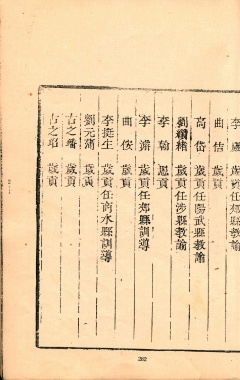 李 歲貢任郟縣教諭
曲佶 歲貢
高岱 歲貢任陽武縣教諭
劉緒 歲貢任涉縣教諭
李翰 恩貢
李濬 歲貢任郟縣訓導
曲俊 歲貢
李挺生 歲貢任商水縣訓導
劉元蒲 歲貢
古之璠 歲貢
古之昭 歲貢
262